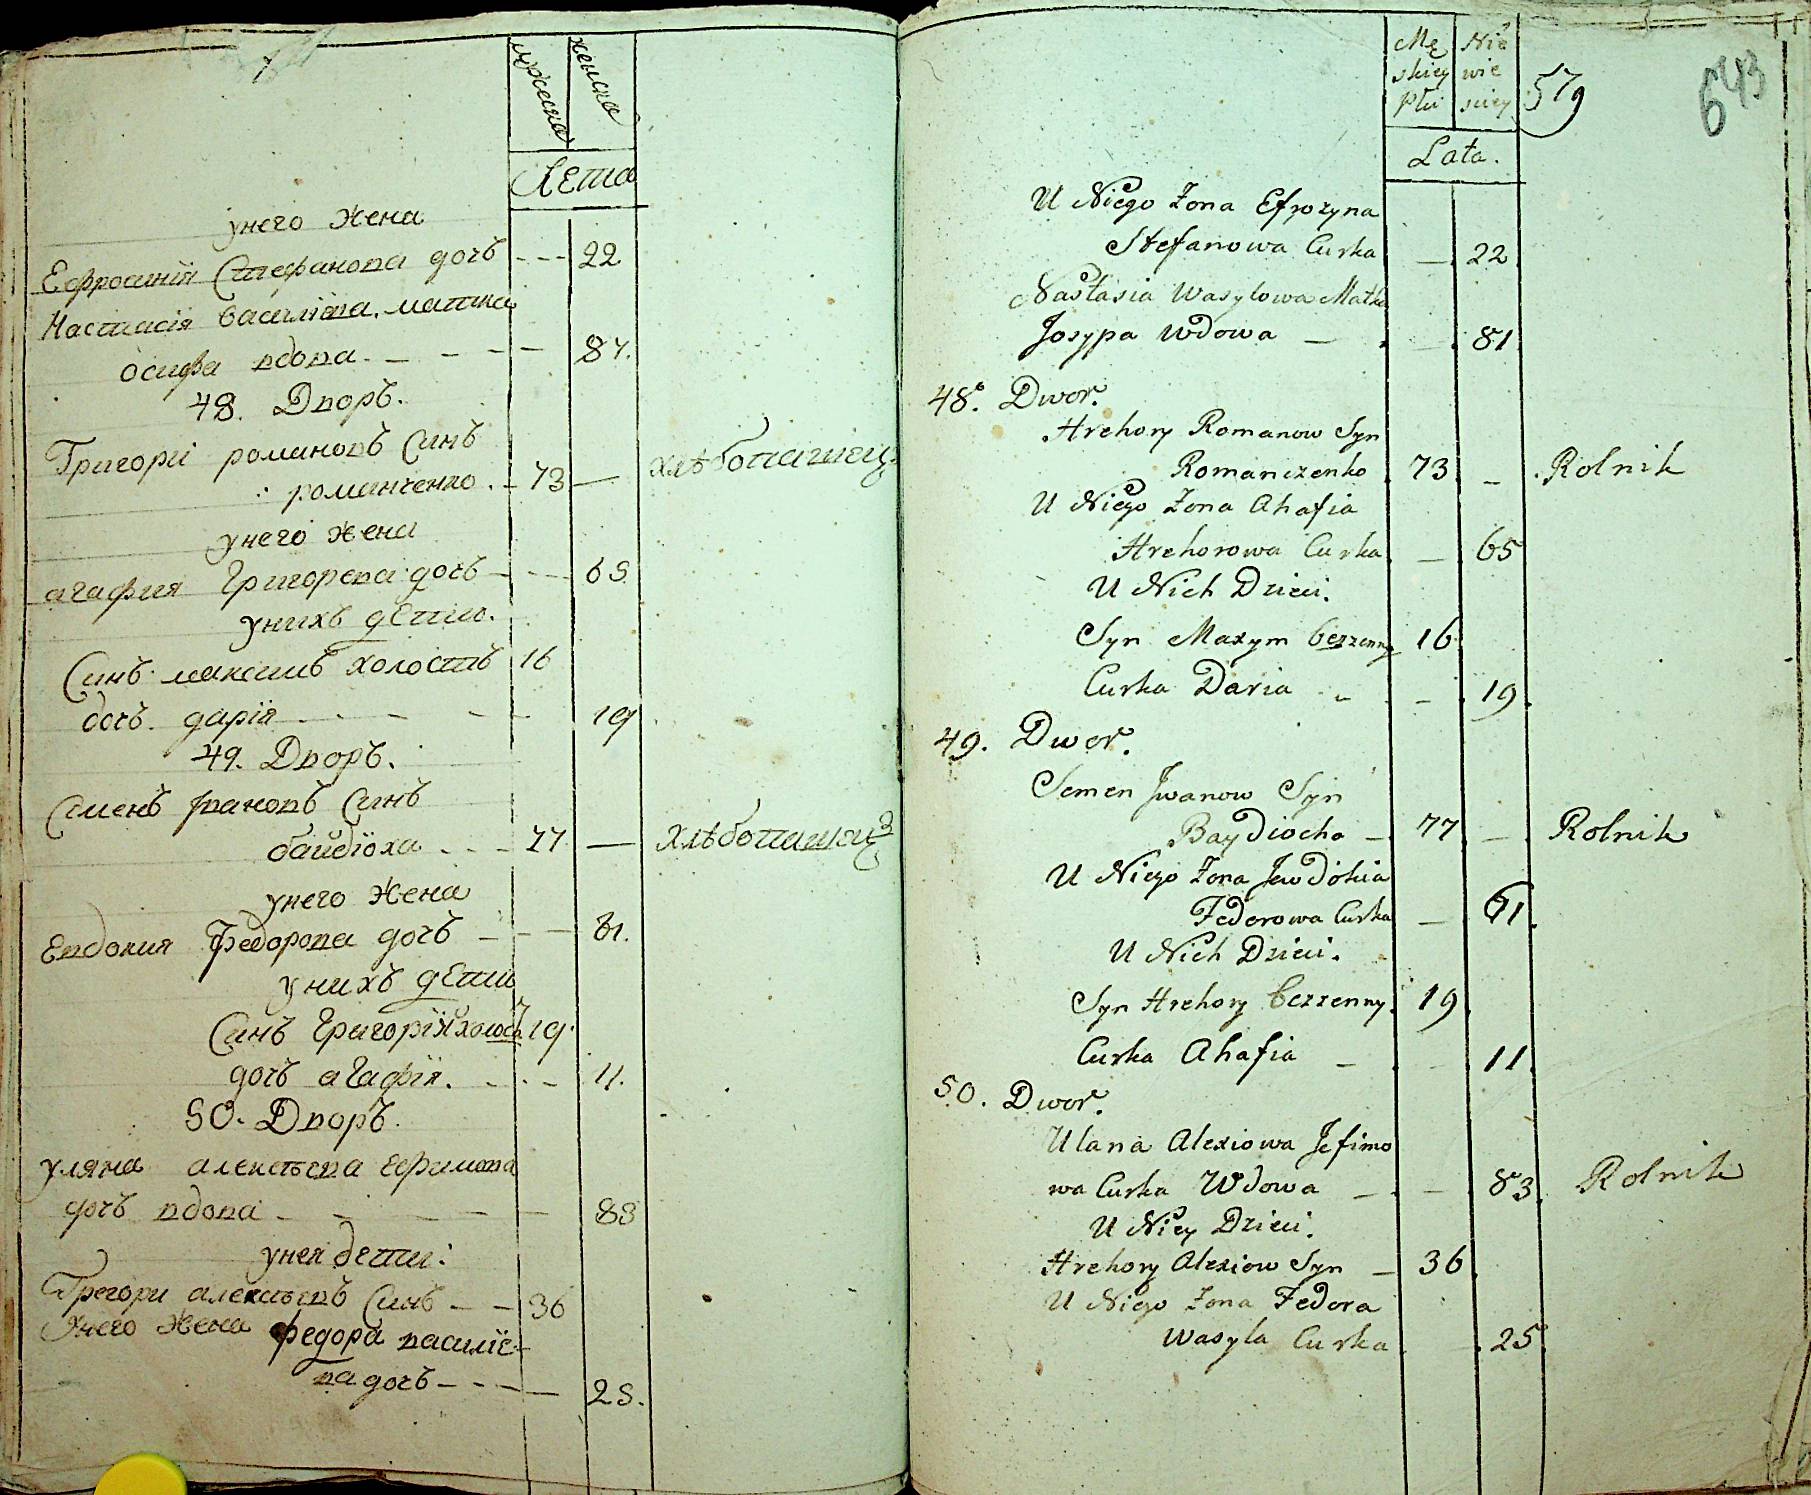 мужеска
женска
Лета
унего жена
Ефросинія Стефанова дочъ --- 22
Настасія Василіова матка
осифа вдова. - - - - 81.
48. Дворъ.
Григори романовъ Синъ
романченко. - 73 — хлѣбопашецъ
унего жена
агафия Григорева дочъ - - - 65
унихъ дети.
Синъ максимъ холостъ 16
дочъ дарія - - - - - 19
49. Дворъ.
Семенъ Івановъ Синъ
байдюха - - - 77 — хлѣбопашецъ
унего жена
Евдокия Федорова дочъ - - - 61.
унихъ дети
Синъ Григорій холостъ 19.
дочъ агафія. - - - 11.
50. Дворъ.
уляна алексѣева Ефимова
дочъ вдова - - - - - 83
унея дети:
Грегори алексѣевъ Синъ - - 36
Унего жена федора василіе-
ва дочъ - - - - 25.
Mę Nie
skiey wie
Płci sciey 579
643
Lata.
U Niego Zona Efrozyna
Stefanowa Curka — 22
Nastasia Wasylowa Matka
Josypa Wdowa — . — 81
48. Dwor.
Hrehory Romanow Syn
Romanczenko 73 - Rolnik
U Niego Zona Ahafia
Hrehorowa Curka — 65
U Nich Dzieci.
Syn Maxym bezzenny 16
Curka Daria - - 19.
49. Dwor.
Semen Jwanow Syn
Baydiocha — 77 — Rolnik
U Niego Zona Jewdokia
Federowa Curka — 61.
U Nich Dzieci.
Syn Hrehory bezzenny. 19
Curka Ahafia — - 11.
50. Dwor.
Ulana Alexiowa Jefimo
wa Curka Wdowa — - 83. Rolnik
U Niey Dzieci.
Hrehory Alexiow Syn — 36
U Niego Zona Fedora
Wasyla Curka . 25.